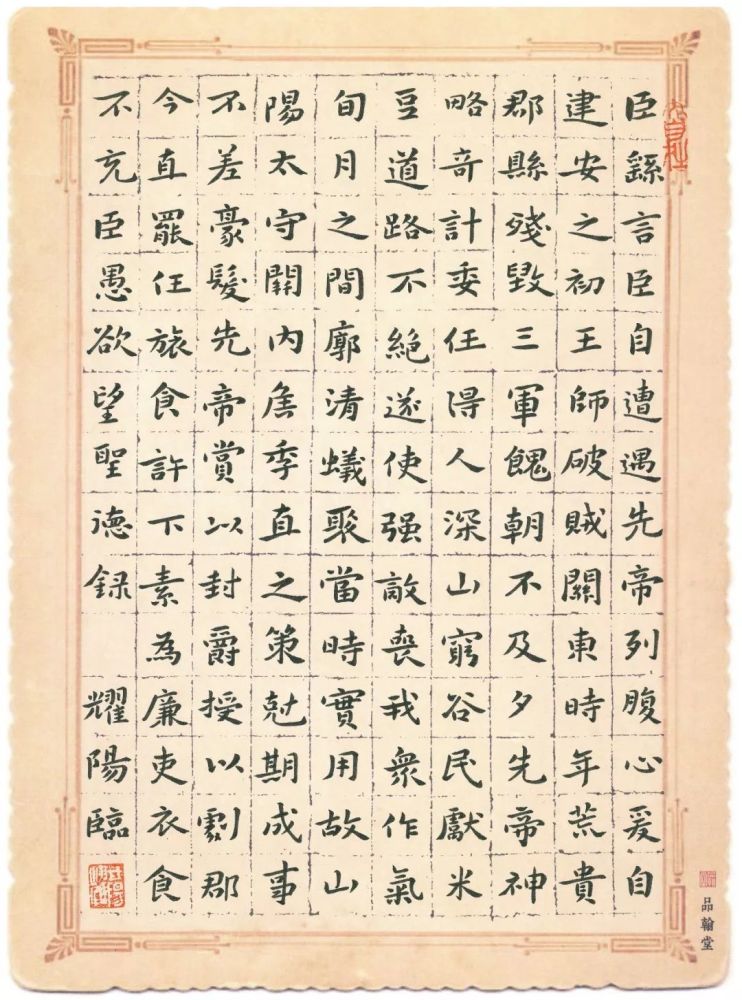 臣繇言臣自遭遇先帝列腹心爰自
建安之初王師破賊關東時年荒貴
郡縣殘毀三軍餽朝不及夕先帝神
略奇計委任得人深山窮谷民獻米
豆道路不絶遂使强敵喪我衆作氣
旬月之間廓清蟻聚當時實用故山
陽太守關內侯季直之策尅期成事
不差豪髮先帝賞以封爵授以劇郡
今直罷任旅食許下素為廉吏衣食
不充臣愚欲望聖德録 耀陽臨
品翰堂